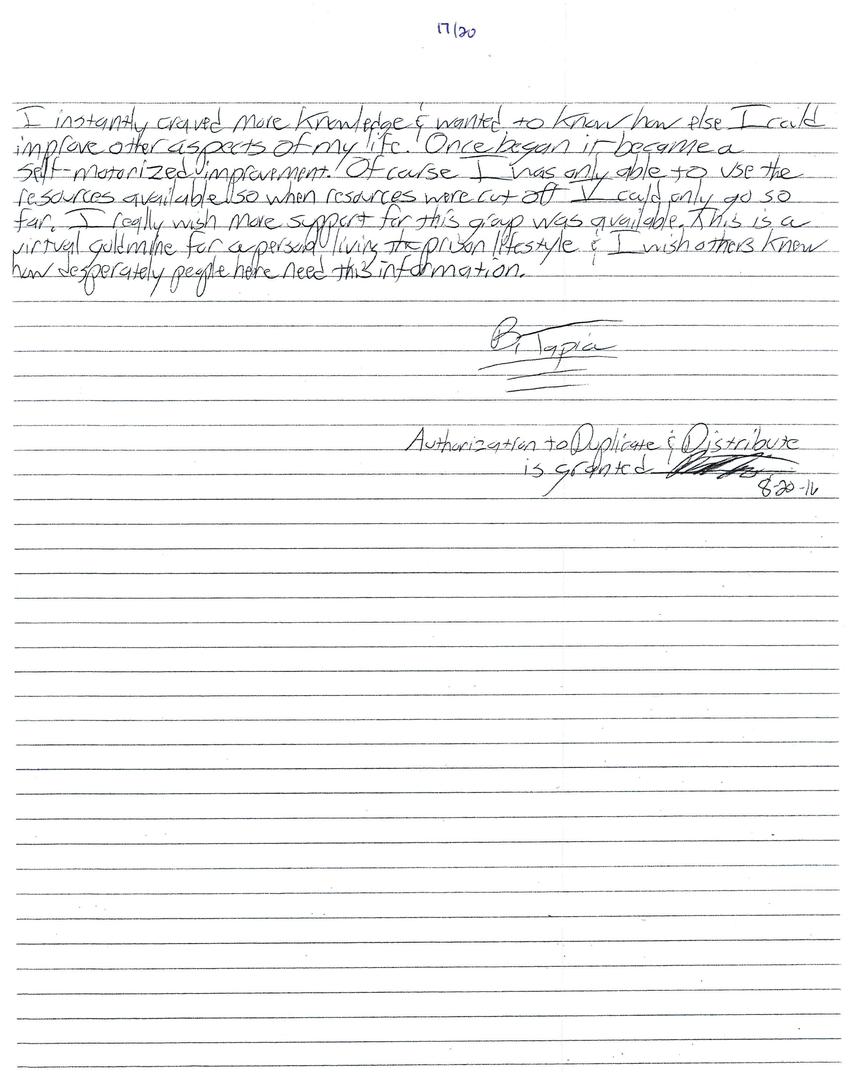 17/20
I instantly craved more knowledge & wanted to know how else I could
improve other aspects of my life. Once began it became a
self-motorized improvement. Of course I was only able to use the
resources available so when resources were cut off I could only go so
far. I really wish more support for this group was available. This is a
virtual goldmine for a person living the prison lifestyle & I wish others knew
how desperately people here need this information.
B. Tapia
Authorization to Duplicate & Distribute
is granted
8-20-16